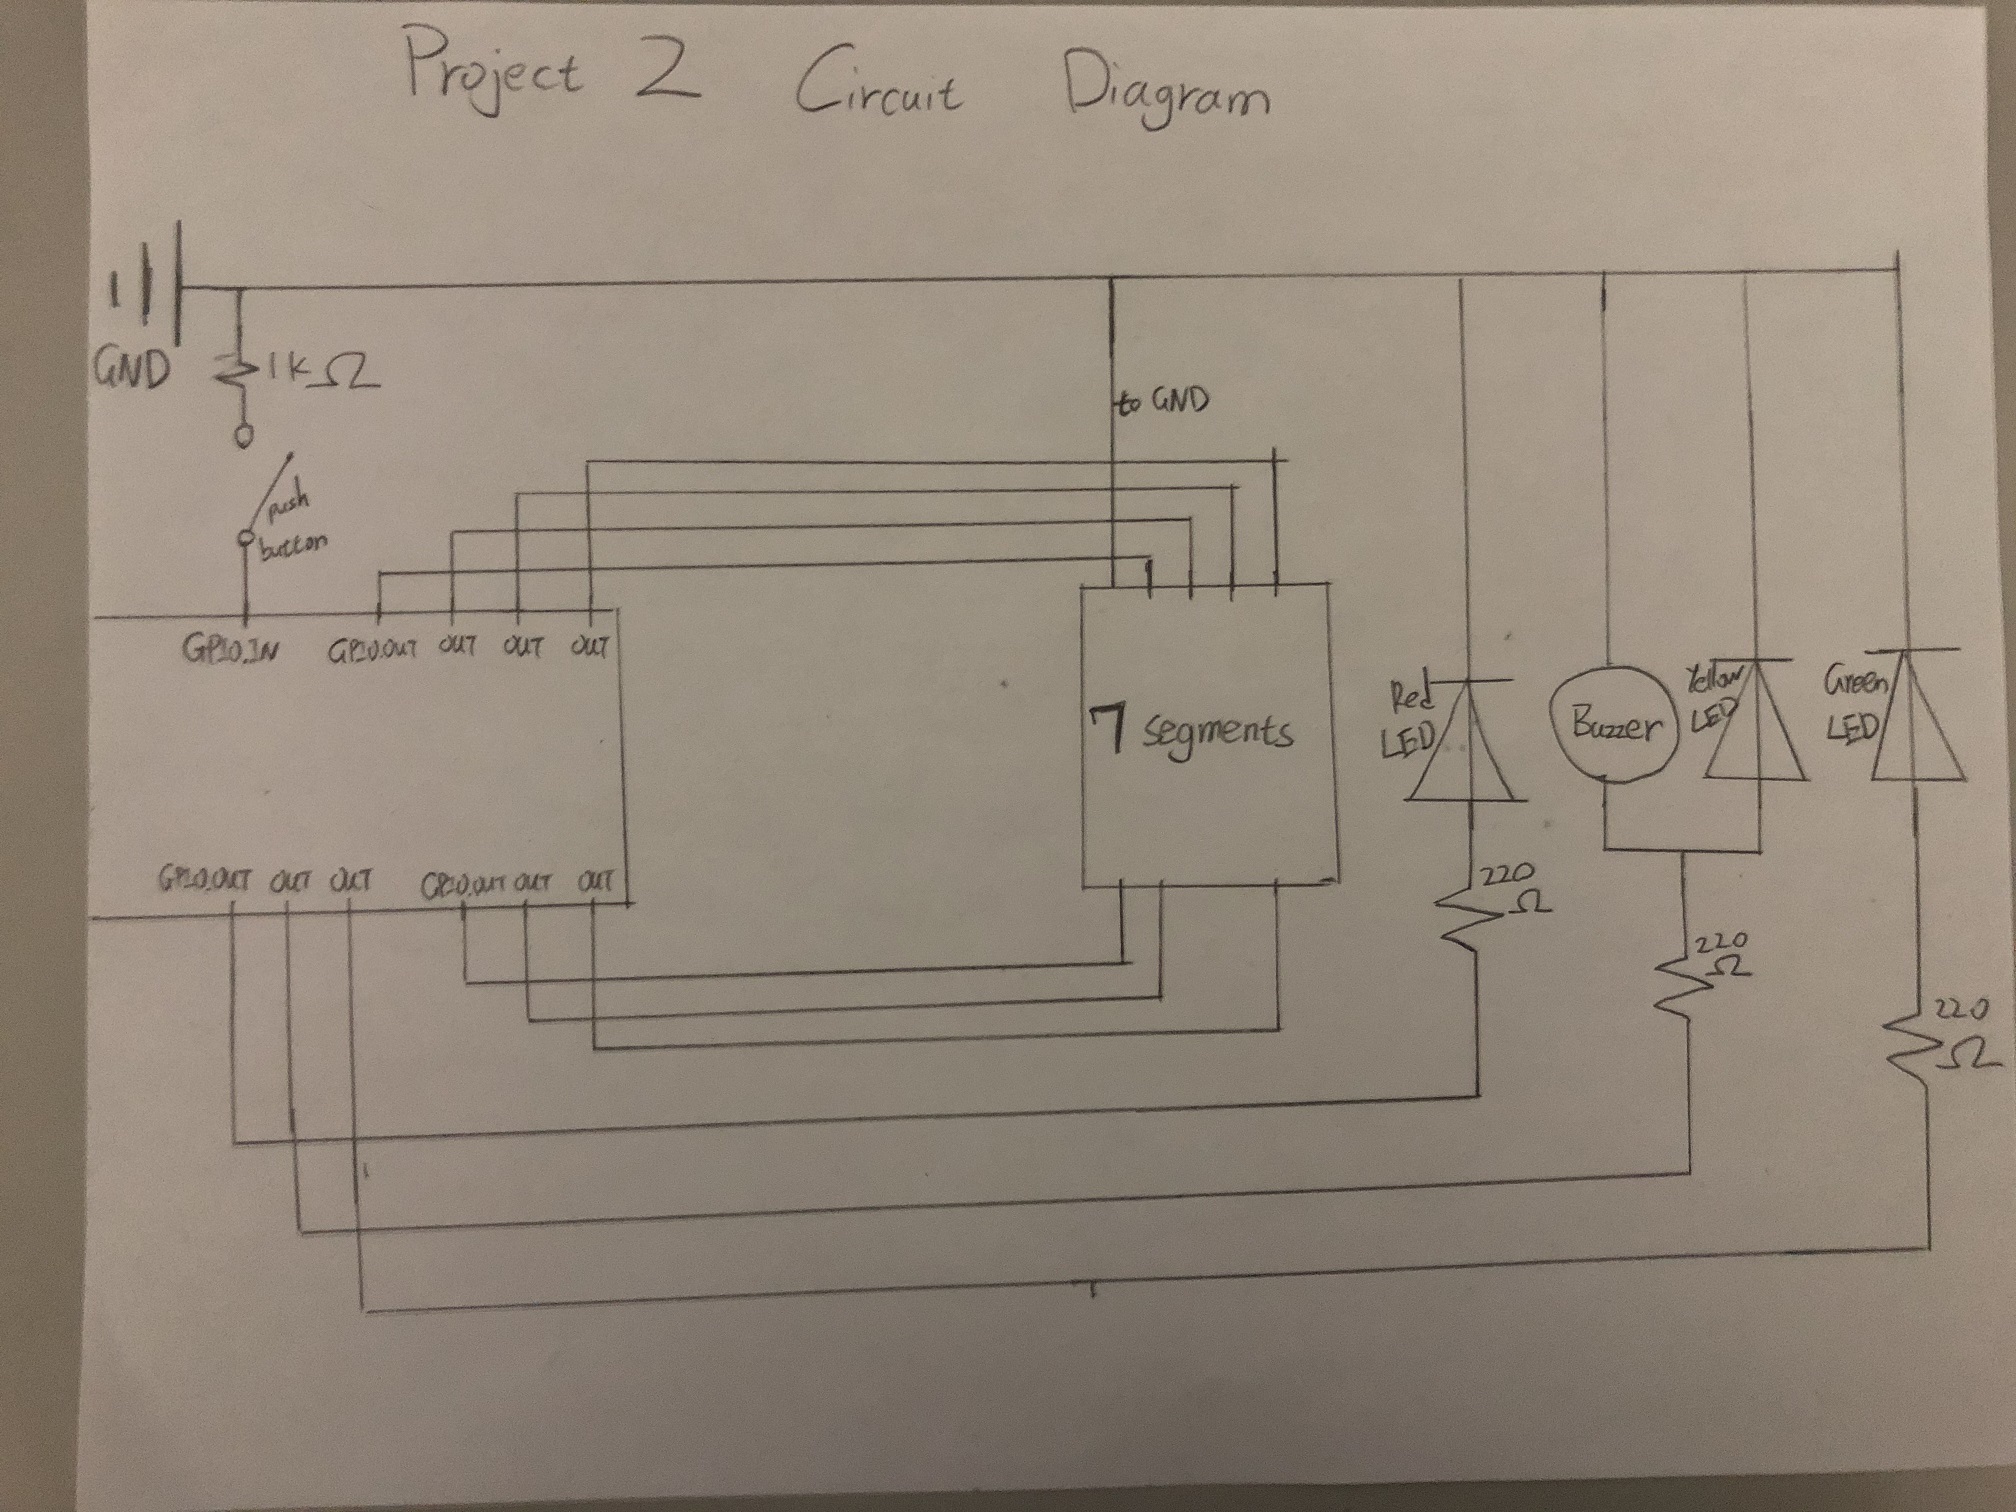 Project 2 Circuit Diagram
GND
1kΩ
push
button
GPIO.IN GPIO.OUT OUT OUT OUT
GPIO.OUT OUT OUT GPIO.OUT OUT OUT
to GND
7 segments
Red
LED
220
Ω
Buzzer
Yellow
LED
220
Ω
Green
LED
220
Ω